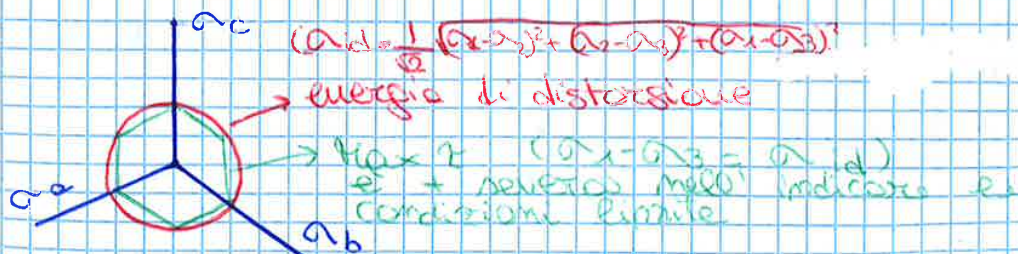 σc
(σid = 1/√2 √(σ1-σ2)²+(σ2-σ3)²+(σ1-σ3)²
energia di distorsione
Max τ (σ1-σ3 = σid)
è + severa nell' indicare le
condizioni limite
σa
σb